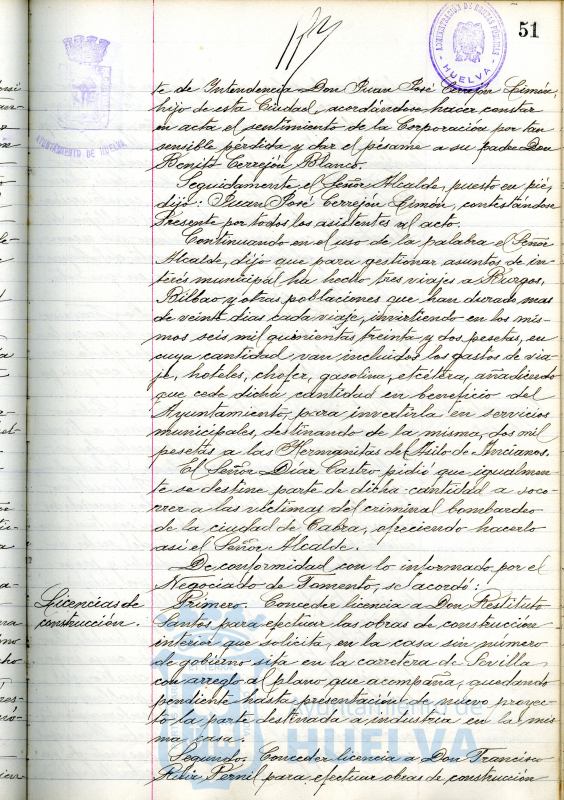 51
ADMINISTRACION DE RENTAS PUBLICAS
HUELVA
AYUNTAMIENTO DE HUELVA
te de Intendencia Don Juan José Cerrejón Limón,
hijo de esta Ciudad, acordándose hacer constar
en acta el sentimiento de la Corporación por tan
sensible pérdida y dar el pésame a su padre Don
Benito Cerrejón Blanco.
Seguidamente el Señor Alcalde, puesto en pié,
dijo: Juan José Cerrejón Limón, contestándose
Presente por todos los asistentes al acto.
Continuando en el uso de la palabra el Señor
Alcalde, dijo que para gestionar asuntos de in-
terés municipal ha hecho tres viajes a Burgos,
Bilbao y otras poblaciones que han durado mas
de veinte dias cada viaje, invirtiendo en los mis-
mos seis mil quinientas treinta y dos pesetas, en
cuya cantidad van incluidos los gastos de via-
je, hoteles, chofer, gasolina, etcétera, añadiendo
que cede dicha cantidad en beneficio del
Ayuntamiento, para invertirla en servicios
municipales, destinando de la misma, dos mil
pesetas a las Hermanitas del Asilo de Ancianos.
El Señor Díaz Castro pidió que igualmen-
te se destine parte de dicha cantidad a soco-
rrer a las victimas del criminal bombardeo
de la ciudad de Cabra, ofreciendo hacerlo
así el Señor Alcalde.
De conformidad con lo informado por el
Negociado de Fomento, se acordó:
Licencias de
construcción.
Primero. Conceder licencia a Don Restituto
Santos para efectuar las obras de construcción
interior que solicita, en la casa sin número
de gobierno sita en la carretera de Sevilla
con arreglo al plano que acompaña, quedando
pendiente hasta presentación de nuevo proyec-
to la parte destinada a industria en la mis-
ma casa.
Segundo. Conceder licencia a Don Francisco
Pernil para efectuar obras de construcción
Ayuntamiento de
HUELVA